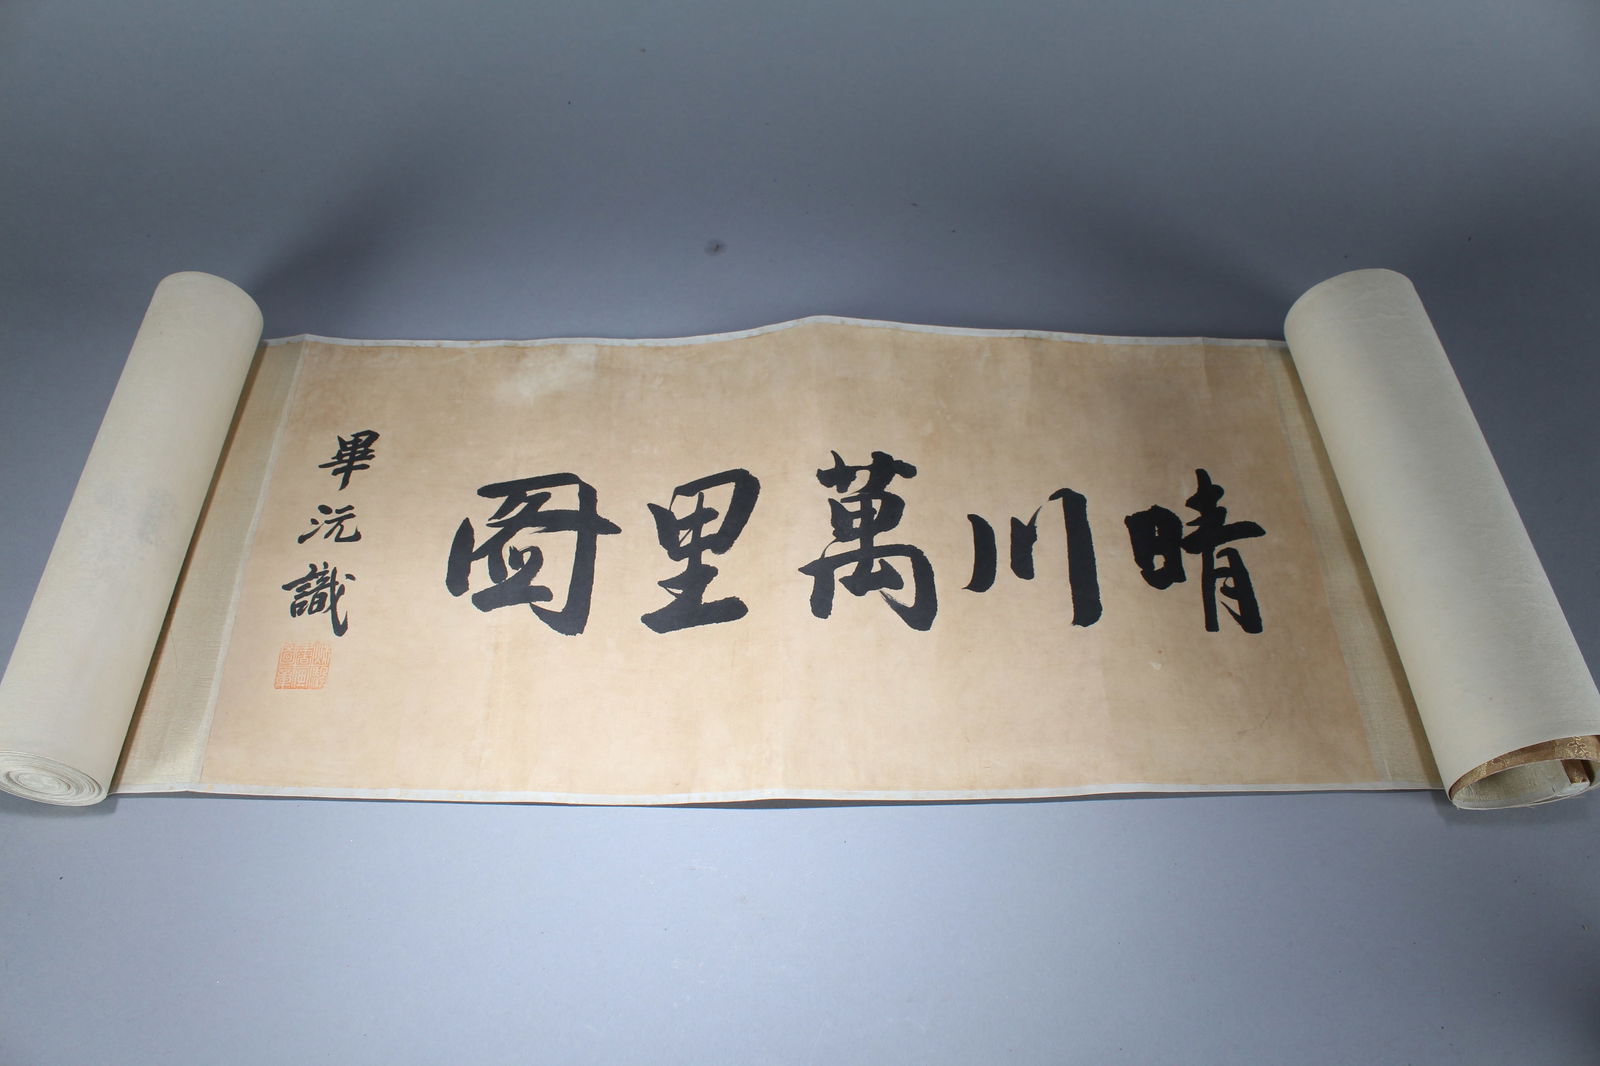 晴川萬里圖
畢沅識